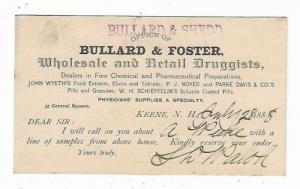 BULLARD & SHEDD
OFFICE OF
BULLARD & FOSTER,
Wholesale and Retail Druggists,
Dealers in Fine Chemical and Pharmaceutical Preparations,
JOHN WYETH'S Fluid Extracts, Elixirs and Tablets; P. J. NOYES' and PARKE DAVIS & CO.'S
Pills and Granules; W. H. SCHIEFFELIN'S Soluble Coated Pills.
PHYSICIANS' SUPPLIES A SPECIALTY.
37 Central Square.
KEENE, N. H. July 28 1888
DEAR SIR:
I will call on you about A. Peake with a
line of samples from above house. Kindly reserve your order
Yours truly,